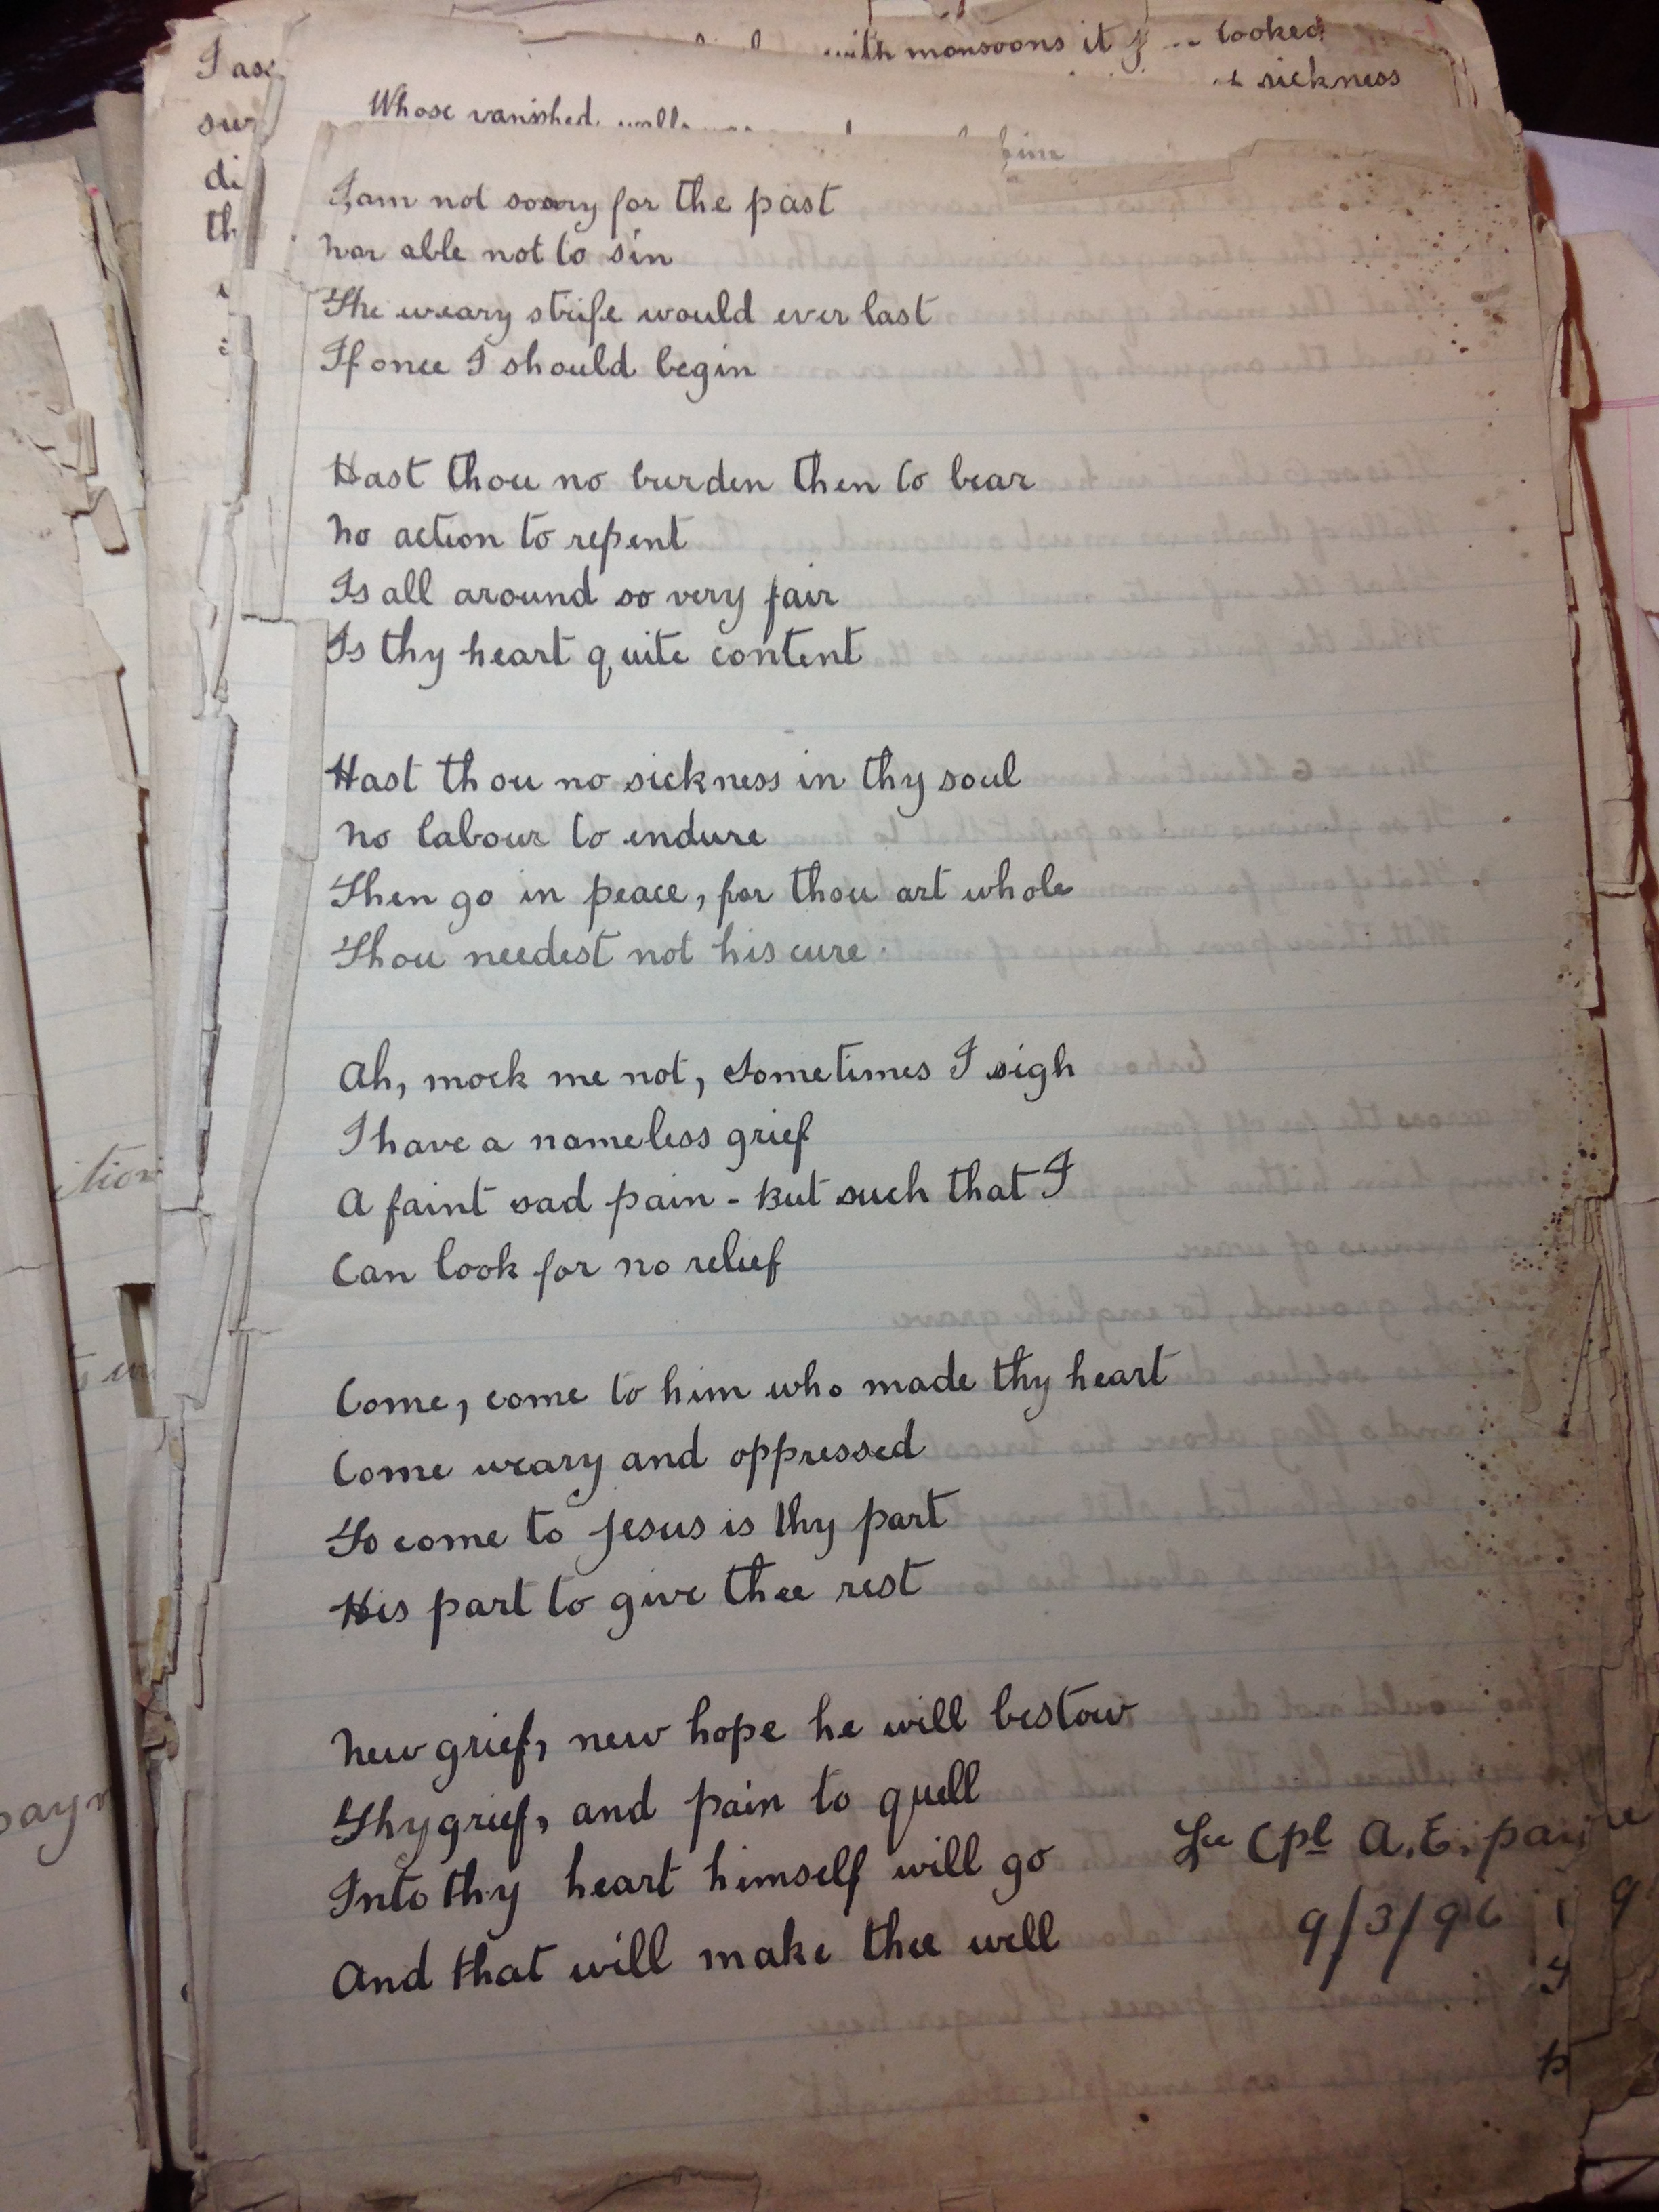 with monsoons it
looked
sickness
Whose vanished walls
him
sur
di
th
I am not sorry for the past
Nor able not to sin
The weary strife would ever last
If once I should begin
Hast thou no burden then to bear
No action to repent
Is all around so very fair
Is thy heart quite content
Hast thou no sickness in thy soul
No labour to endure
Then go in peace, for thou art whole
Thou needest not his cure.
Ah, mock me not, sometimes I sigh
I have a nameless grief
A faint sad pain - But such that I
Can look for no relief
Come, come to him who made thy heart
Come weary and oppressed
To come to Jesus is thy part
His part to give thee rest
New grief, new hope he will bestow
Thy grief, and pain to quell
Into thy heart himself will go
And that will make thee well
Lce Cpl A. E. pain
9/3/96